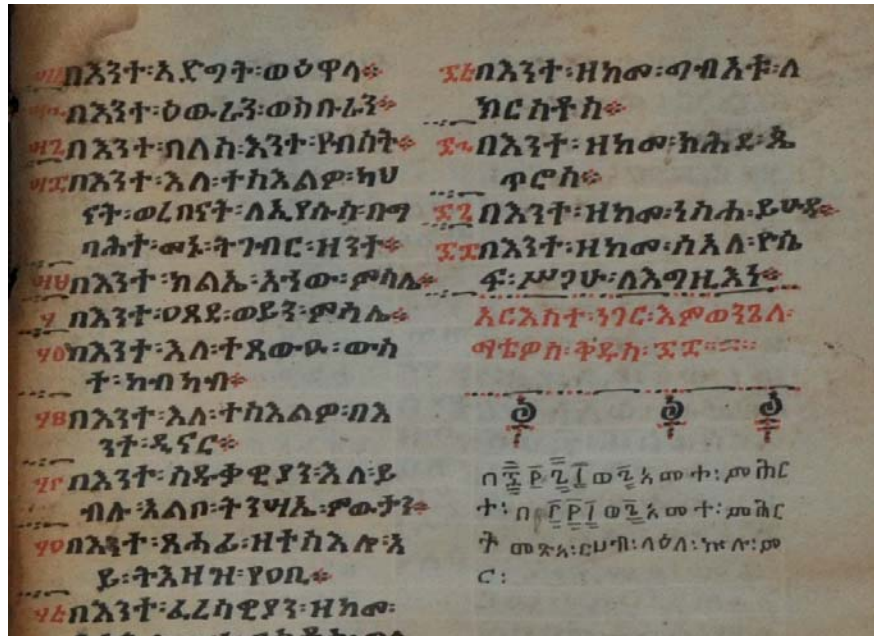 በእንተ፡እድግት፡ወዕዋላ፨
በእንተ፡ዕውራን፡ወስቡራን፨
በእንተ፡በለስ፡እንተ፡የብስት፨
በእንተ፡እለ፡ተስእልዎ፡ካህ
ናት፡ወረበናት፡ለኢየሱስ፡በግ
ባሕት፡መኑ፡ትገብር፡ዘንተ፨
በእንተ፡ክልኤ፡አኀው፡ምሳሌ፨
፺ በእንተ፡ዐጸደ፡ወይን፡ምሳሌ፨
፺፩ በእንተ፡እለ፡ተጸውዑ፡ውስ
ተ፡ከብካብ፨
፺፪ በእንተ፡እለ፡ተስእልዎ፡በእ
ንተ፡ዲናር፨
፺፫ በእንተ፡ስዱቃዊያን፡እለ፡ይ
ብሉ፡አልቦ፡ትንሣኤ፡ምውታን፨
፺፬ በእንተ፡ጸሓፊ፡ዘተስእሎ፡አ
ይ፡ትእዛዝ፡የዐቢ፨
፺፭ በእንተ፡ፈሪሳዊያን፡ዘከመ፡
በእንተ፡ዘከመ፡ግብአቱ፡ለ
ክርስቶስ፨
በእንተ፡ዘከመ፡ክሕደ፡ጴ
ጥሮስ፨
በእንተ፡ዘከመ፡ነስሐ፡ይሁዳ፨
በእንተ፡ዘከመ፡ሰአለ፡ዮሴ
ፍ፡ሥጋሁ፡ለእግዚእነ፨
አርእስተ፡ነገር፡እምወንጌለ፡
ማቴዎስ፡ቅዱስ፡
ወ፪ አመተ፡ምሕር
ት፡በ ወ፪ አመተ፡ምሕር
ት
ር፡